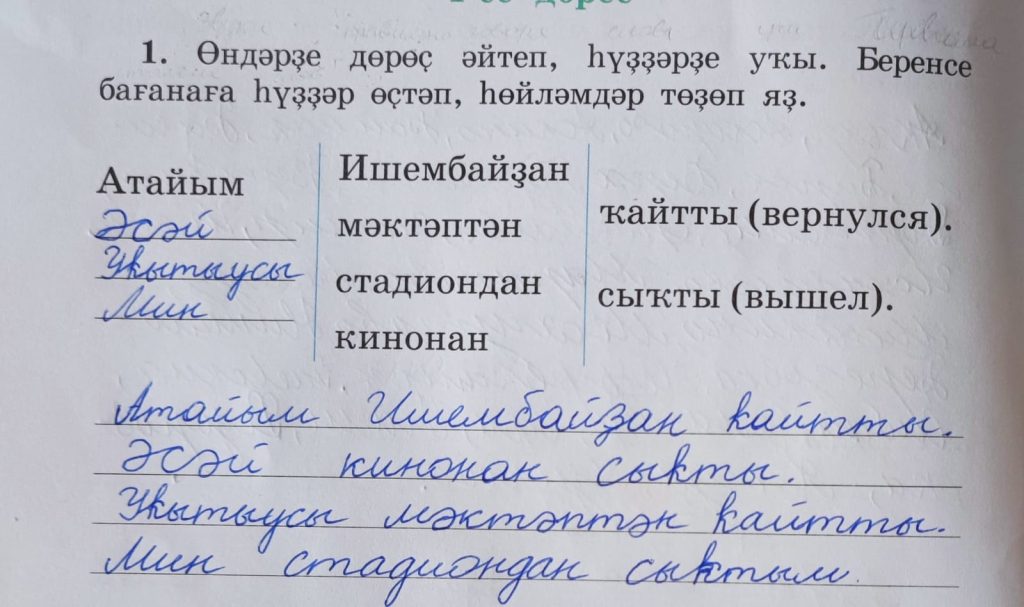 1. Өндәрҙе дөрөҫ әйтеп, һүҙҙәрҙе уҡы. Беренсе
бағанаға һүҙҙәр өҫтәп, һөйләмдәр төҙөп яҙ.
Атайым
Әсәй
Уҡытыусы
Мин
Ишембайҙан
мәктәптән
стадиондан
кинонан
ҡайтты (вернулся).
сыҡты (вышел).
Атайым Ишембайҙан ҡайтты.
Әсәй кинонан сыҡты.
Уҡытыусы мәктәптән ҡайтты.
Мин стадиондан сыҡтым.